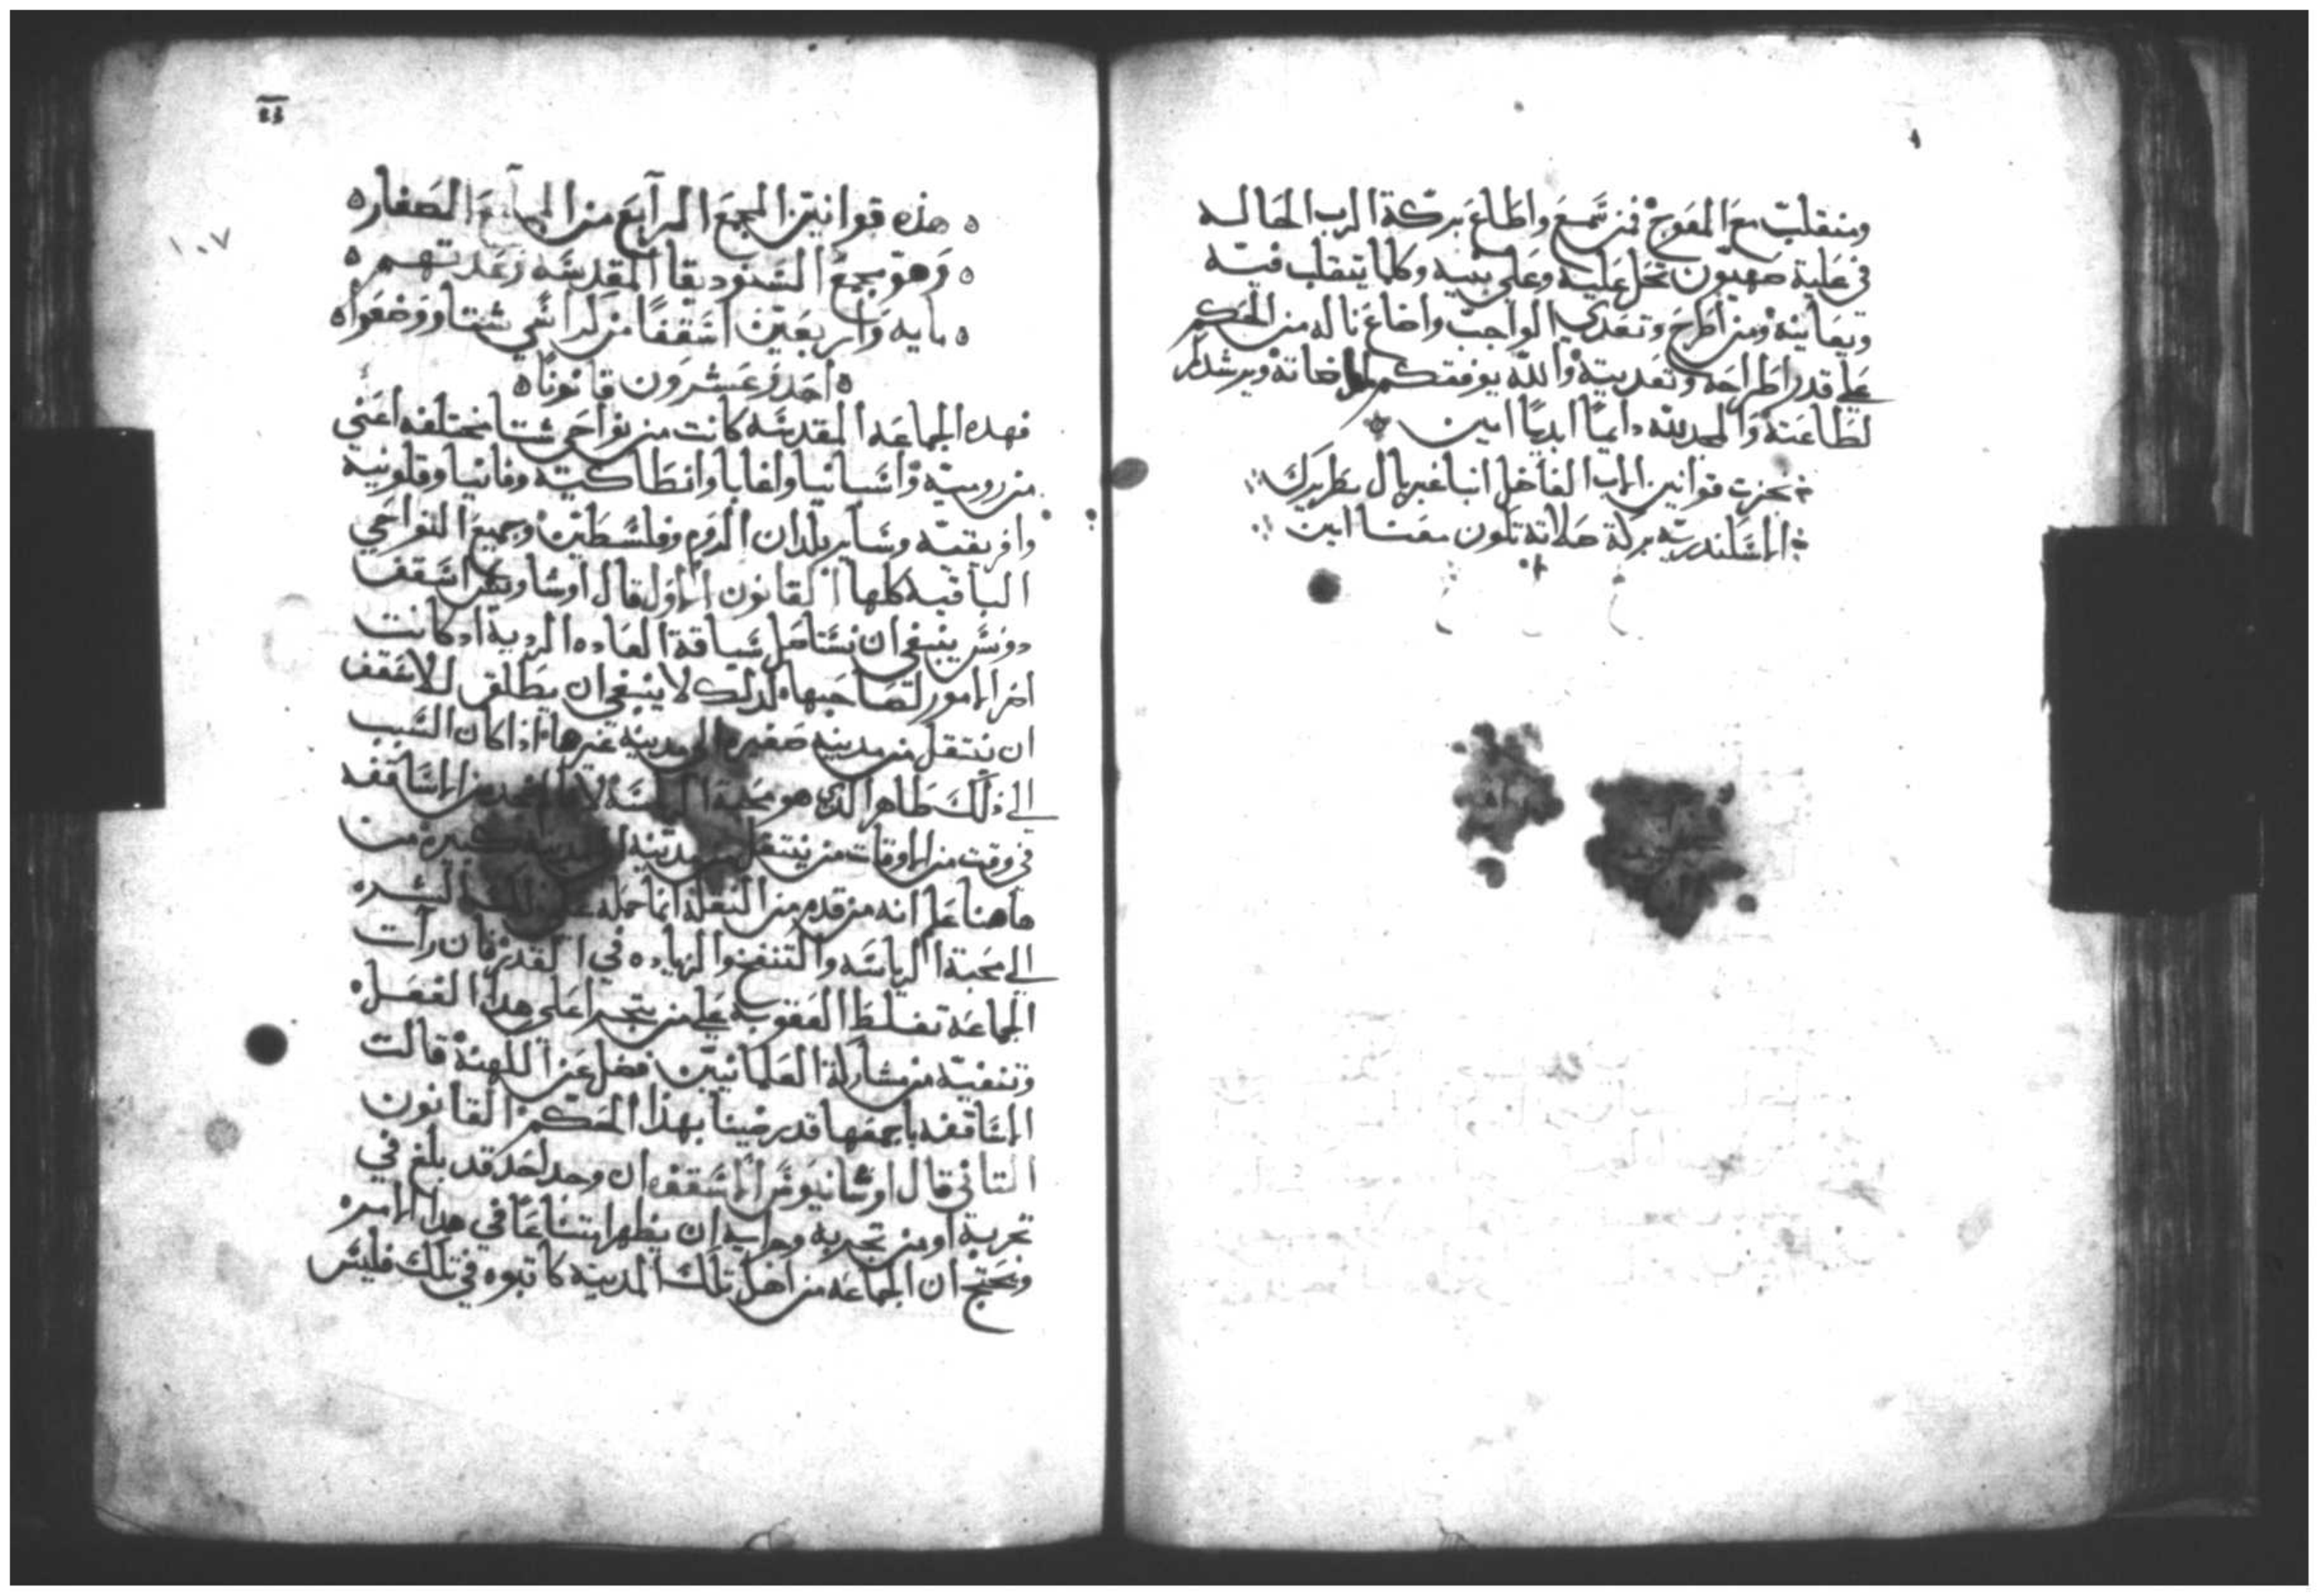 ومنقلب مع المعوج فمن سمع واطاع بركة الرب الحاله
في علية صهيون تحل عليه وعلي بنيه وكلما يتقلب فيه
ويعانيه ومن اطرح وتعدي الواجب واضاع ناله من الحكم
علي قدر اطراحه وتعديته والله يوفقكم لمرضاته ويرشدكم
لطاعته والمجد لله دايمًا ابديًا امين
نجزت قوانين الاب الفاضل انبا غبريال بطريرك
الاسكندريه بركة صلاته تكون معنا امين
١٠٧
هذه قوانين المجمع الرابع من المجامع الصغار
وهو مجمع السنوديقا المقدسه وعدتهم
مايه واربعين اسقفًا من كراسي شتا ووضعوا
احد وعشرون قانونًا
فهده الجماعه المقدسه كانت من نواحي شتا مختلفه اعني
من روميه واسبانيا وانطاكيه وقلونية
وافريقيه وساير بلدان الروم وفلسطين وجميع النواحي
الباقيه كلها القانون الاول قال اوسا اسقف
ينبغي ان نستاصل سياقة العاده الرديه اد كانت
اضر الامور لصاحبها لدلك لا ينبغي ان يطلق للاسقف
ان ينتقل من مدينه صغيره الي مدينه غيرها ادا كان السبب
الي ذلك ظاهرا الدي هو محبة لانا لم نجد من الاساقفه
في وقت من الاوقات من ينتقل من مدينه كبيره من
هاهنا علم انه من قدم من النقله انما حمله علي ذلك الشره
الي محبة الرياسه والتنفخ والزياده في القدر فان رات
الجماعه تغلظ العقوبة علي من يتجرا علي هدا الفعل
وتنفيه من مشاركة العلمانيين فضل عن الكهنة قالت
الاساقفه باجمعها قد رضينا بهذا الحكم القانون
التاني قال اوسانيوس الاسقف ان وجد احد قد بلغ في
تجربة او من ان يظهر في هدا الامر
ويحتج ان الجماعه من اهل تلك المدينه كاتبوه في تلك فليس